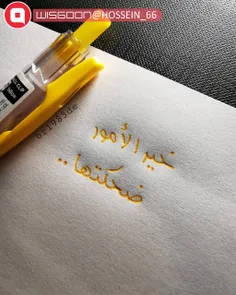 WISGOON@HOSSEIN_66
خير الأمور
ضحكتها..